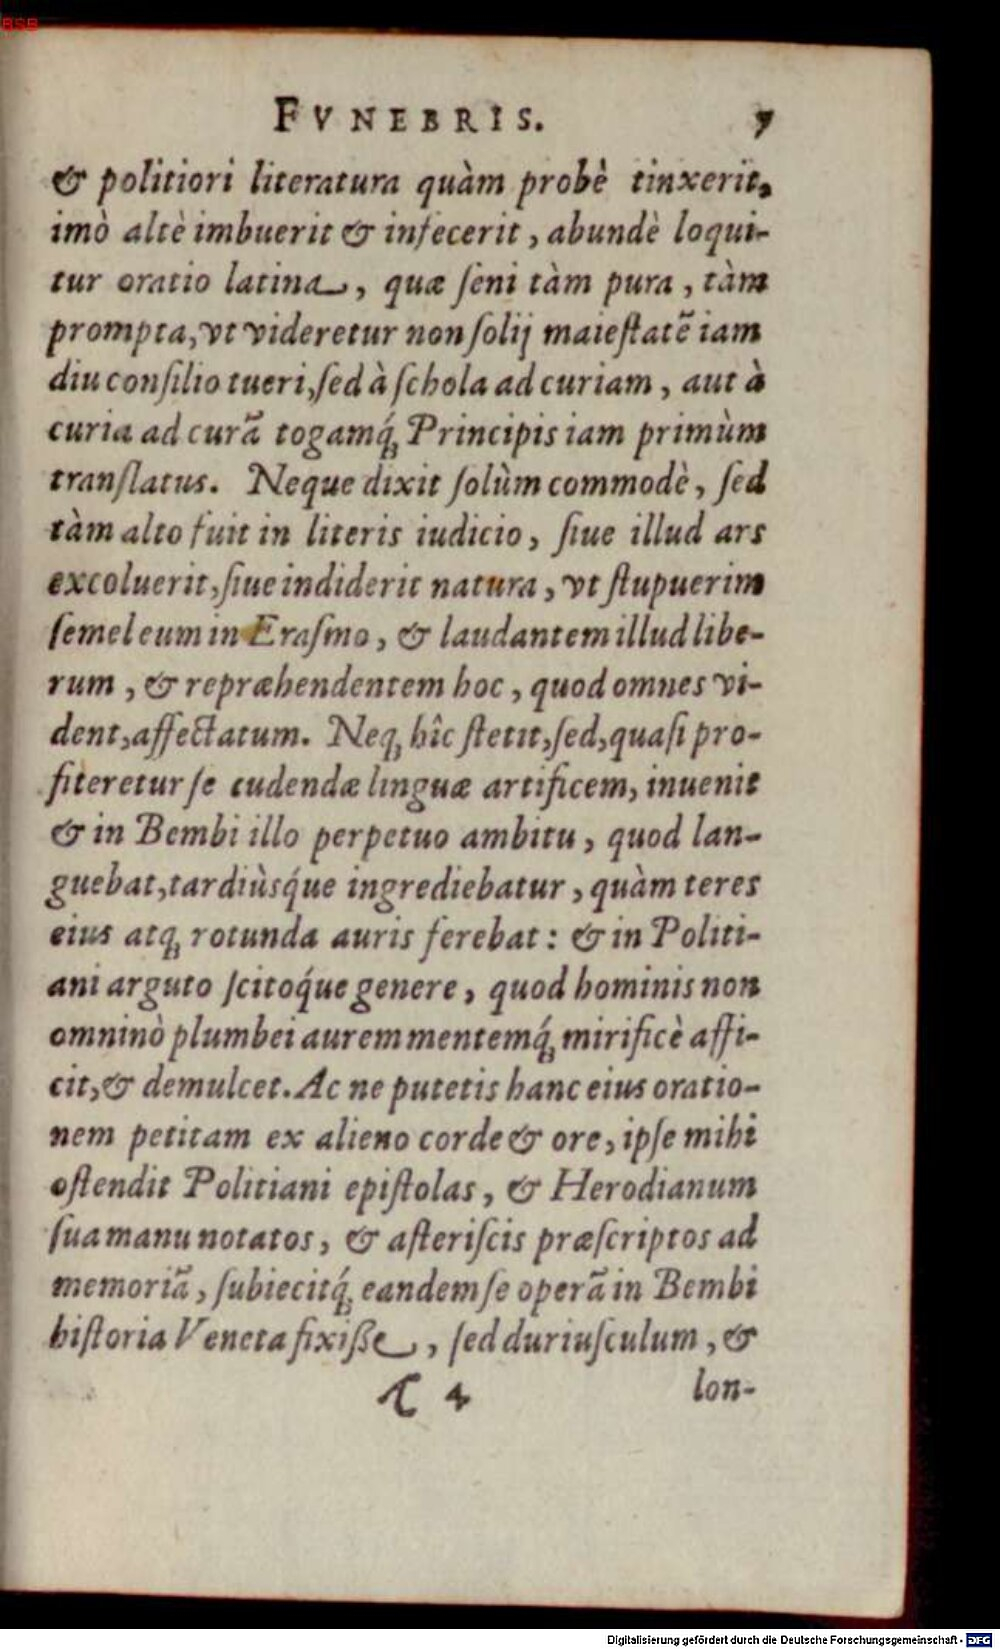 BSB
FVNEBRIS. 7
& politiori literatura quàm probè tinxerit,
imò altè imbuerit & infecerit, abundè loqui-
tur oratio latina, quæ ſeni tàm pura, tàm
prompta, vt videretur non ſolij maieſtatẽ iam
diu conſilio tueri, ſed à ſchola ad curiam, aut à
curia ad curã togamq́; Principis iam primùm
tranſlatus. Neque dixit ſolùm commodè, ſed
tàm alto fuit in literis iudicio, ſiue illud ars
excoluerit, ſiue indiderit natura, vt ſtupuerim
ſemel eum in Eraſmo, & laudantem illud libe-
rum, & repræhendentem hoc, quod omnes vi-
dent, affectatum. Neq; hîc ſtetit, ſed, quaſi pro-
fiteretur ſe cudendæ linguæ artificem, inuenit
& in Bembi illo perpetuo ambitu, quod lan-
guebat, tardiùsq́ue ingrediebatur, quàm teres
eius atq; rotunda auris ferebat: & in Politi-
ani arguto ſcitoq́ue genere, quod hominis non
omninò plumbei aurem mentemq́; mirificè affi-
cit, & demulcet. Ac ne putetis hanc eius oratio-
nem petitam ex alieno corde & ore, ipſe mihi
oſtendit Politiani epiſtolas, & Herodianum
ſua manu notatos, & aſteriſcis præſcriptos ad
memoriã, ſubiecitq́; eandem ſe operã in Bembi
hiſtoria Veneta fixiße, ſed duriuſculum, &
4 lon-
Digitalisierung gefördert durch die Deutsche Forschungsgemeinschaft - DFG